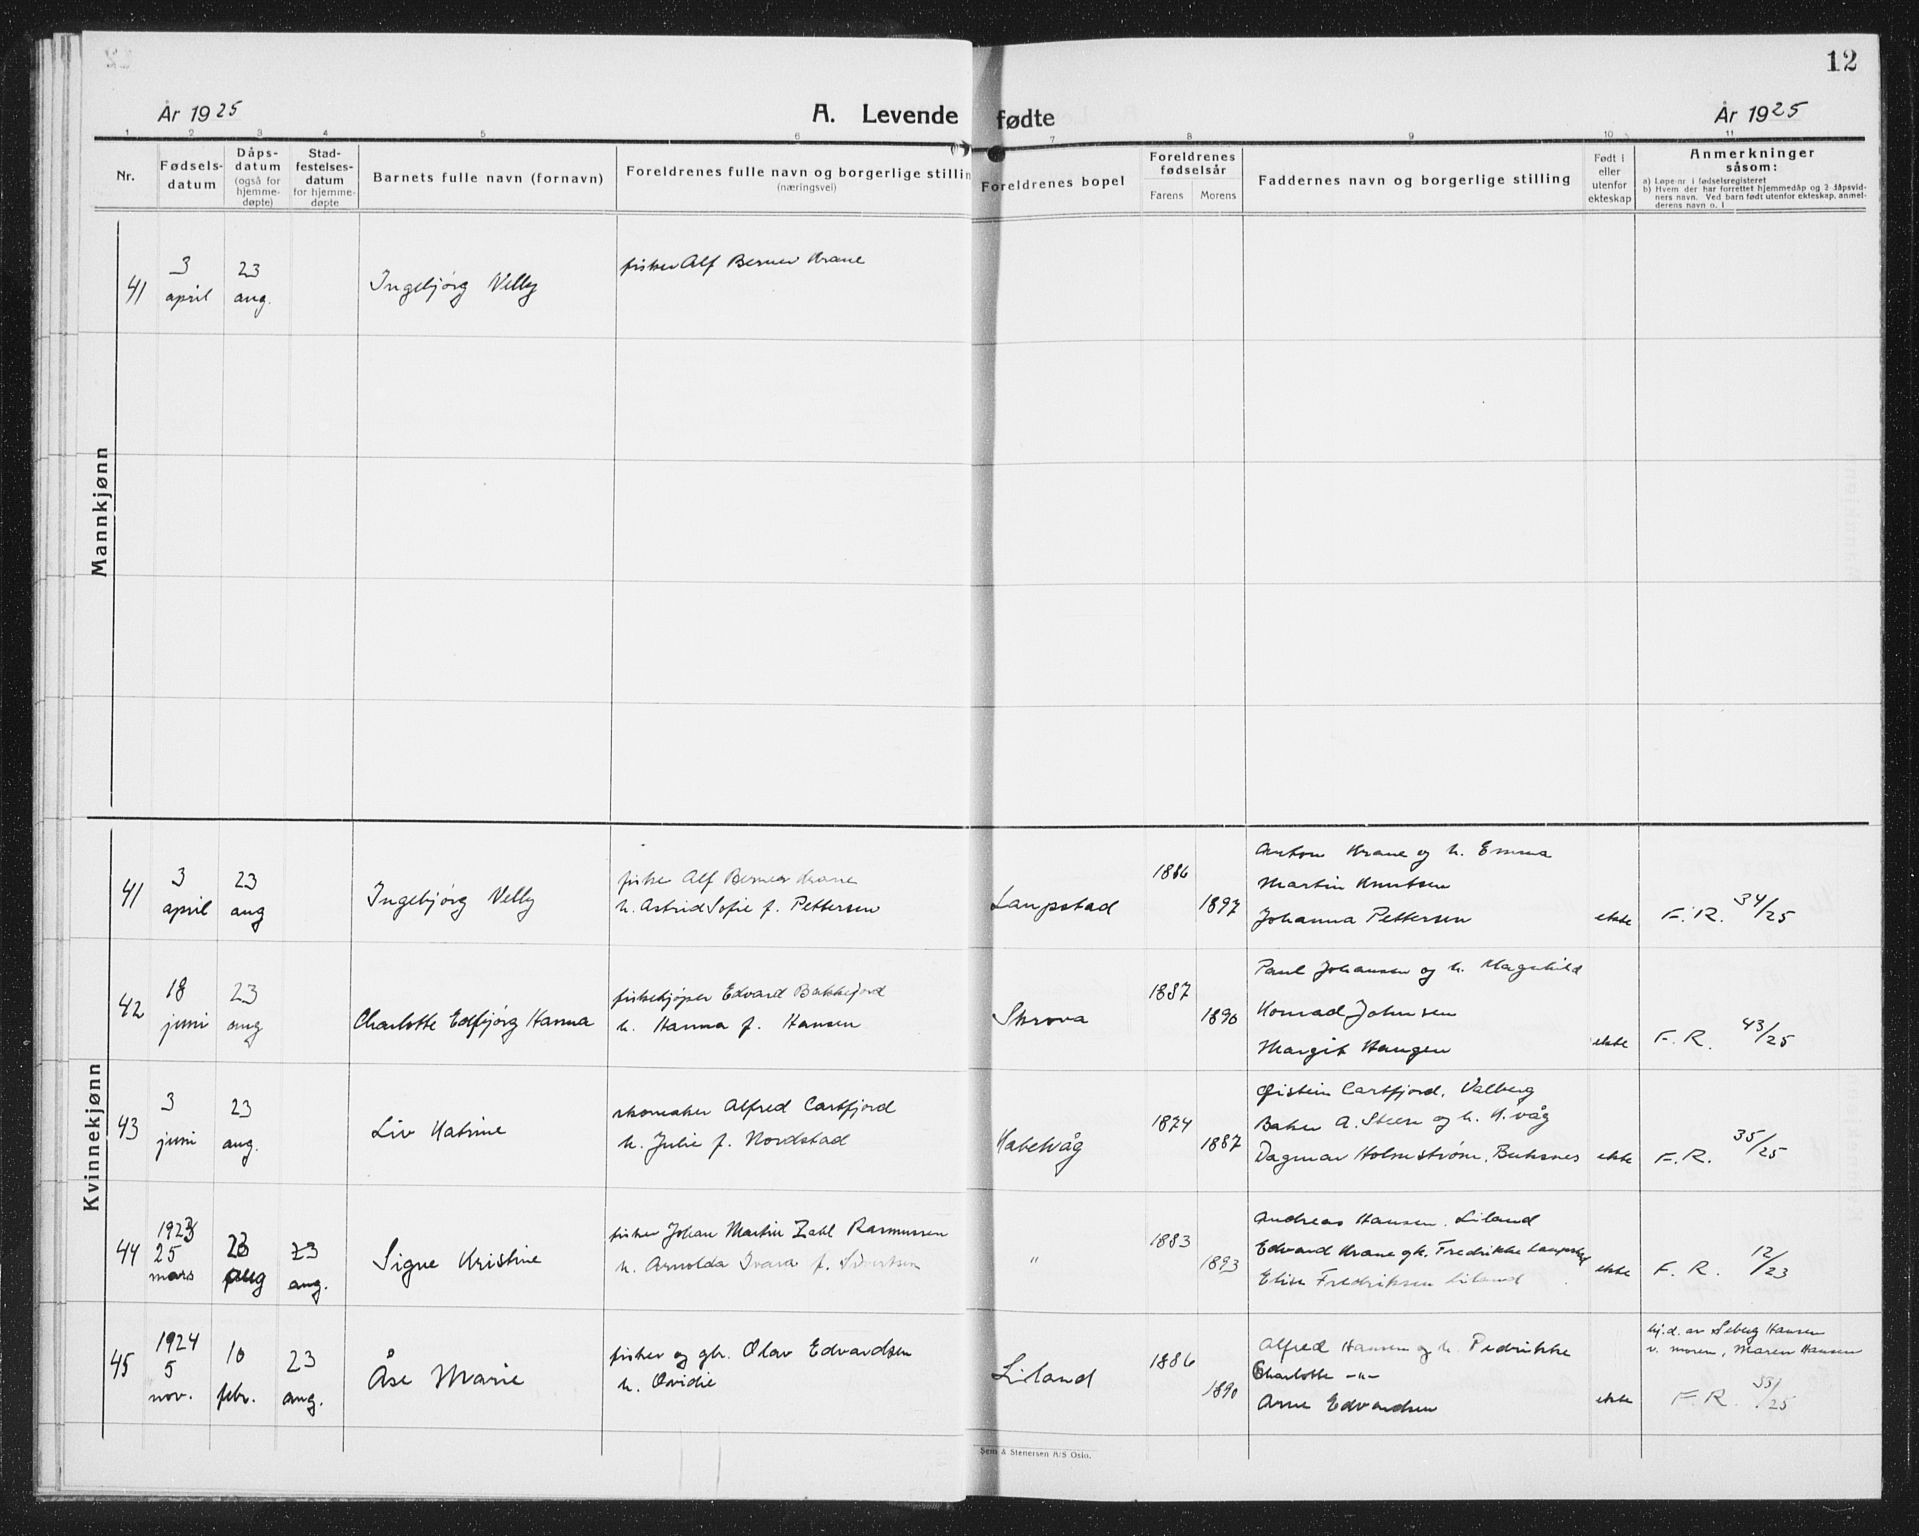 12
År 1925
A. Levende fødte
År 1925
1 2 3 4 5 6 7 8 9 10 11
Nr.
Fødsels-
datum
Dåps-
datum
(også for
hjemme-
døpte)
Stad-
festelses-
datum
for hjemme-
døpte
Barnets fulle navn (fornavn)
Foreldrenes fulle navn og borgerlige stillin
(næringsvei)
Foreldrenes bopel
Foreldrenes
fødselsår
Farens Morens
Faddernes navn og borgerlige stilling
Født i
eller
utenfor
ekteskap
Anmerkninger
såsom:
a) Løpe-nr. i fødselsregisteret
b) Hvem der har forrettet hjemmedåp og 2 dåpsvid-
ners navn. Ved barn født utenfor ekteskap, anmel-
derens navn o. l
Mannkjønn
41
3
april
23
aug.
Ingebjørg Velly
fisker Alf Berner Krane
Kvinnekjønn
41
3
april
23
aug
Ingebjørg Velly
fisker Alf Berner Krane
h. Astrid Sofie f. Pettersen
Laupstad
1886
1897
Anton Krane og h. Emma
Martin Knutsen
Johanna Pettersen
ekte
F. R. 34/25
42
18
juni
23
aug
Charlotte Edbjørg Hanna
fiskekjøper Edvard Bakkejord
h. Hanna f. Hansen
Skrova
1887
1890
Paul Johansen og h. Magnhild
Konrad Johnsen
Margit Haugen
ekte
F. R. 43/25
43
3
juni
23
aug.
Liv Katrine
skomaker Alfred Cartfjord
h. Julie f. Nordstad
Kabelvåg
1874
1887
Øistein Cartfjord, Valberg
Baker A. Steen og h. K.våg
Dagmar Holmstrøm, Buksnes
ekte
F. R. 35/25
44
1923
25
mars
23
aug
23
aug.
Signe Kristine
fisker Johan Martin Zahl Rasmussen
h. Arnolda Ivara f. Sivertsen
"
1883
1893
Andreas Hansen, Liland
Edvard Krane og h. Fredrikke Laupstad
Elise Fredriksen Liland
ekte
F. R. 12/23
45
1924
5
nov.
10
febr.
23
aug.
Åse Marie
fisker og gbr. Olav Edvardsen
h. Ovidie
Liland
1886
1890
Alfred Hansen og h. Pedrikke
Charlotte -"-
Arne Edvardsen
ekte
hj.d. av Seberg Hansen
v. moren, Maren Hansen
F. R. /25
Sem & Stenersen A/S Oslo.